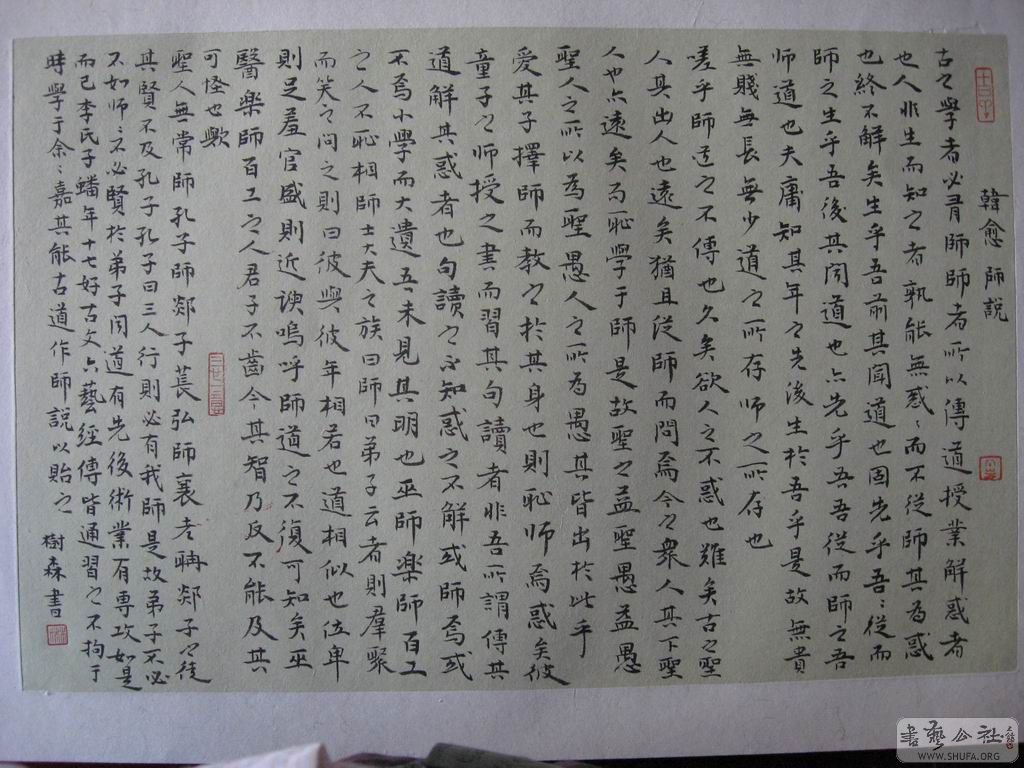 韓愈 師説
古之學者必有師師者所以傳道授業解惑者
也人非生而知之者孰能無惑〻而不從師其為惑
也終不解矣生乎吾前其聞道也固先乎吾〻從而
師之生乎吾後其聞道也亦先乎吾吾從而師之吾
師道也夫庸知其年之先後生於吾乎是故無貴
無賤無長無少道之所存師之所存也
嗟乎師道之不傳也久矣欲人之不惑也難矣古之聖
人其出人也遠矣猶且從師而問焉今之衆人其下聖
人也亦遠矣而恥學于師是故聖之益聖愚益愚
聖人之所以為聖愚人之所為愚其皆出於此乎
愛其子擇師而教之於其身也則恥师焉惑矣彼
童子之师授之書而習其句讀者非吾所謂傳其
道解其惑者也句讀之不知惑之不解或師焉或
不焉小學而大遺吾未見其明也巫師樂師百工
之人不恥相師士大夫之族曰師曰弟子云者則羣聚
而笑之问之則曰彼與彼年相若也道相似也位卑
則足羞官盛則近諛嗚呼師道之不復可知矣巫
醫樂師百工之人君子不齒今其智乃反不能及其
可怪也歟
聖人無常師孔子師郯子萇弘師襄老聃郯子之徒
其賢不及孔子孔子曰三人行則必有我師是故弟子不必
不如师师不必賢於弟子聞道有先後術業有專攻如是
而已李氏子蟠年十七好古文六藝經傳皆通習之不拘于
時學于余〻嘉其能古道作師說以貽之 樹森書
書藝公社
WWW.SHUFA.ORG